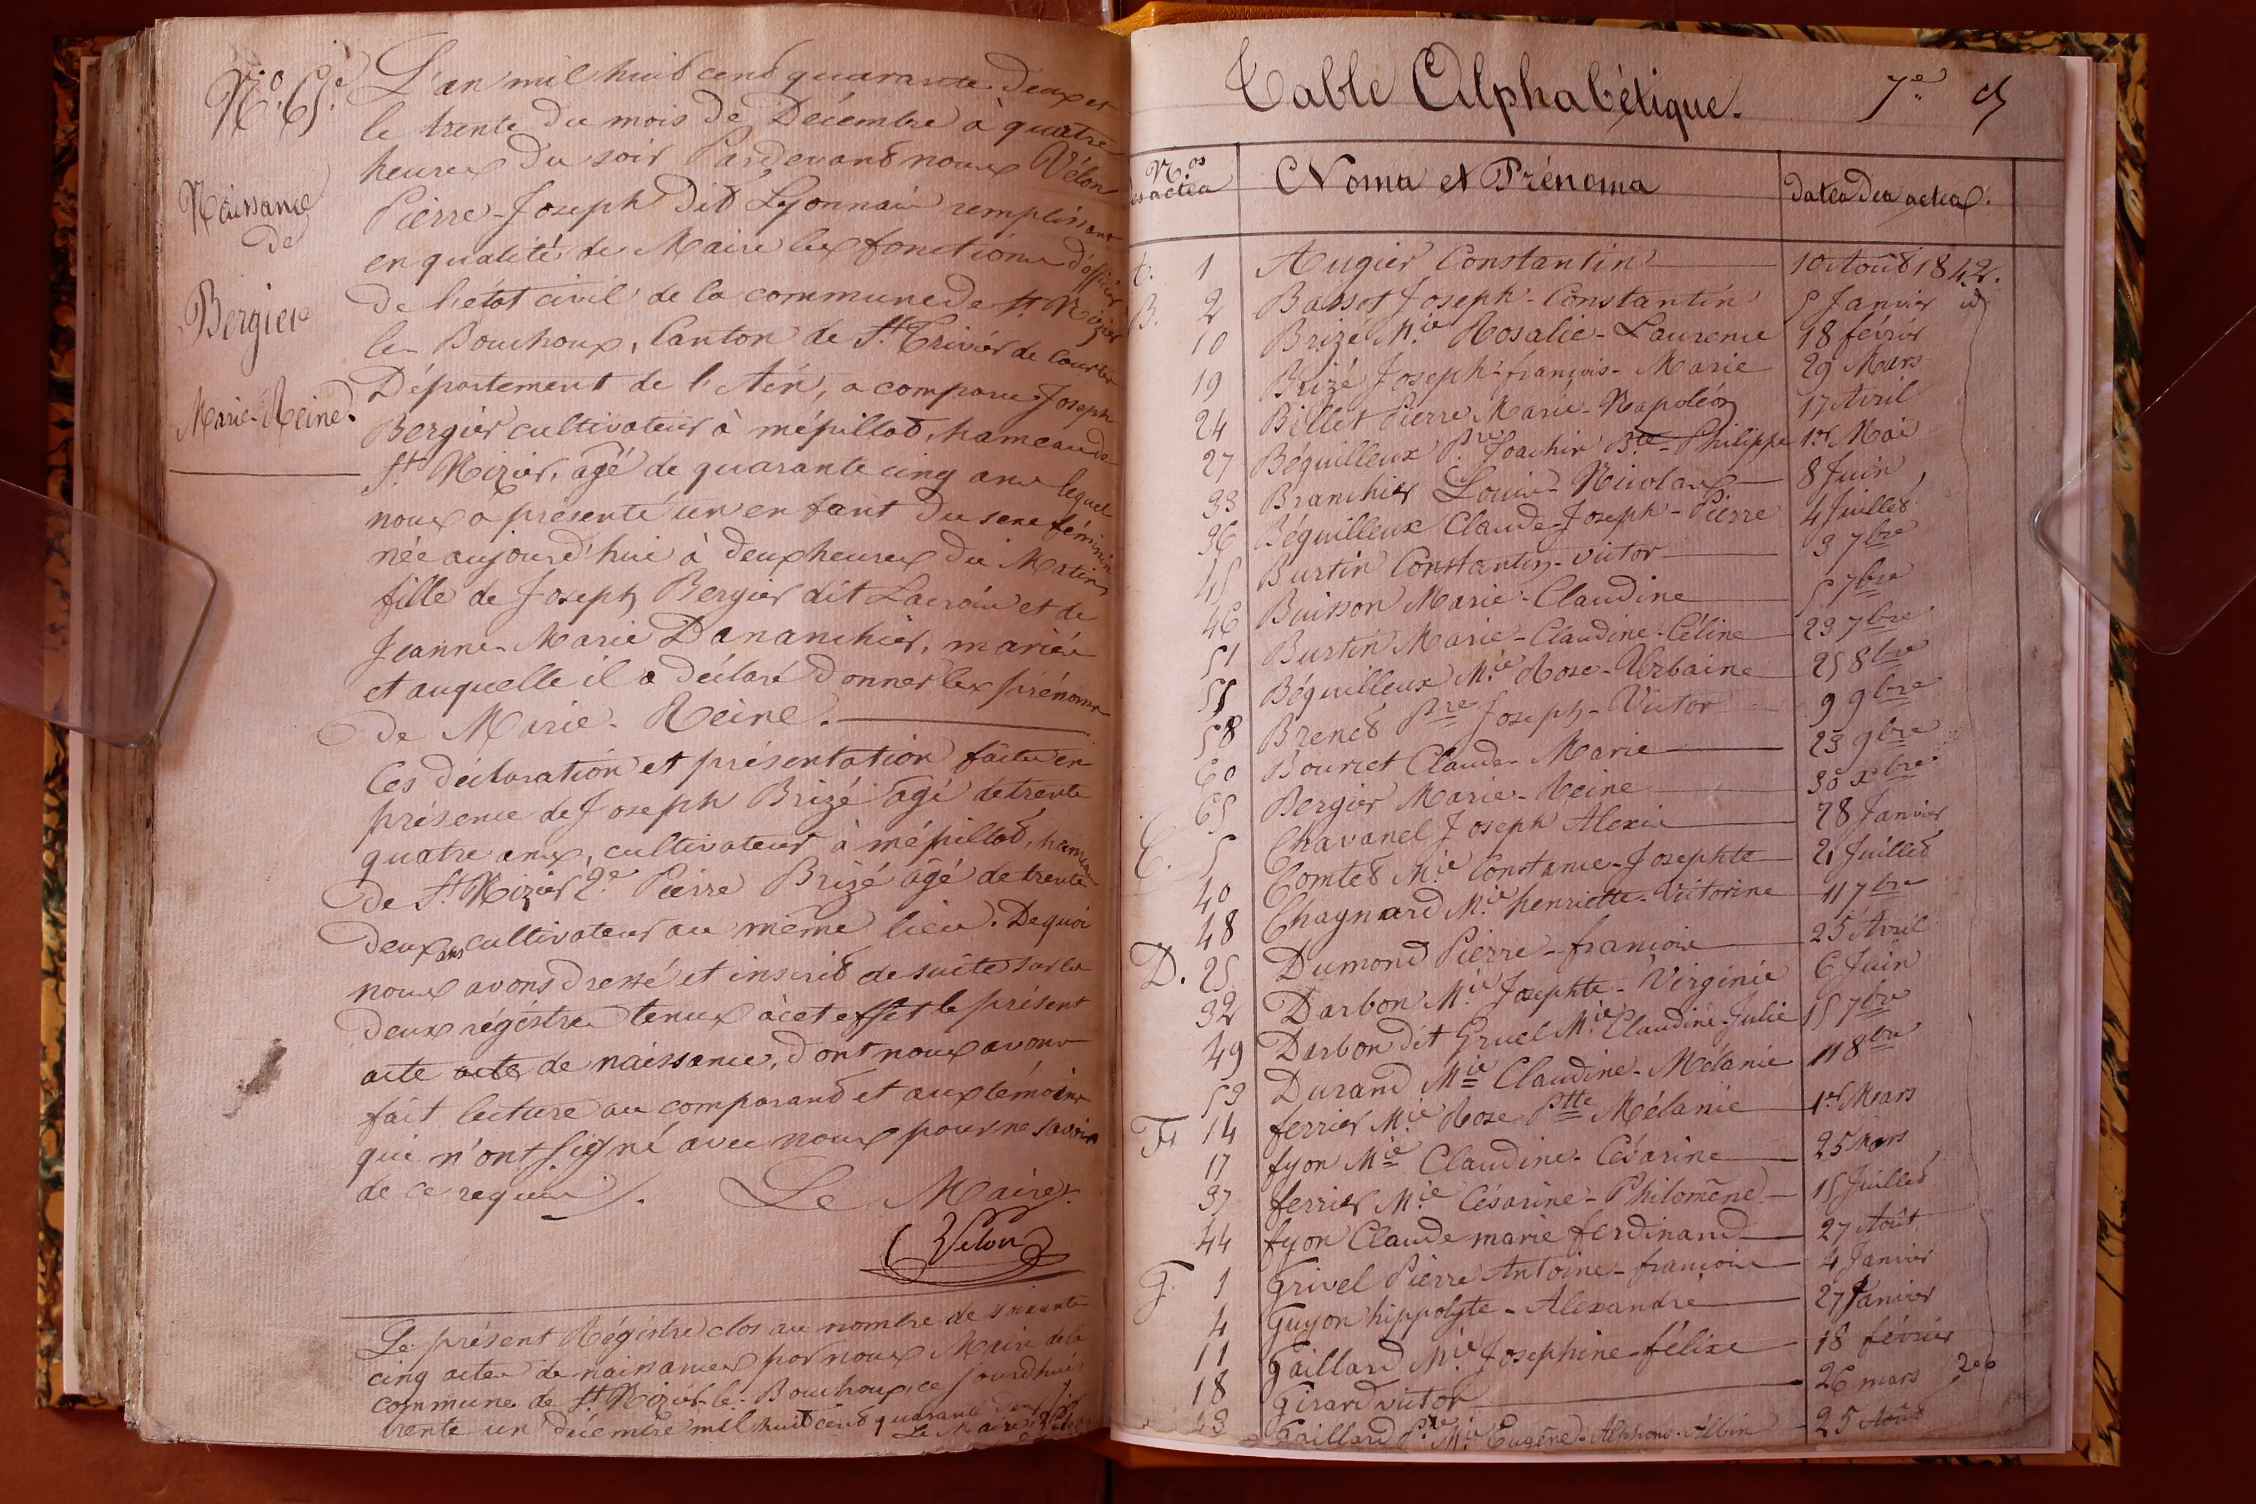 N.o 65.e
Naissance
de
Bergier
Marie-Reine.
L'an mil huit cent quarante deux et
le trente du mois de Décembre à quatre
heures du soir Pardevant nous Vélon
Pierre-Joseph dit Lyonnais remplissant
en qualité de Maire les fonctions d'officier
de l'état civil de la commune de St. Nizier
le Bouchoux, Canton de St. Trivier de Courtes
Département de l'Ain, a comparu Joseph
Bergier cultivateur à mépillat, hameau de
St. Nizier, âgé de quarante cinq ans lequel
nous a présenté un enfant du sexe féminin
née aujourd'hui à deux heures du Matin
fille de Joseph Bergier dit Lacroix et de
Jeanne-Marie Dananchier, mariés
et auquelle il a déclaré donner les prénoms
de Marie-Reine.
Ces déclaration et présentation faites en
présence de Joseph Brizé âgé de trente
quatre ans, cultivateur à mépillat, hameau
de St. Nizier 2.e Pierre Brizé âgé de trente
deux ans cultivateur au même lieu. De quoi
nous avons dressé et inscrit de suite sur les
deux régistres tenus à cet effet le présent
acte acte de naissance, dont nous avons
fait lecture au comparant et aux témoins
qui n'ont signé avec nous pour ne savoir
de ce requis.
Le Maire.
Vélon
Le présent Régistre clos au nombre de soixante
cinq actes de naissances par nous Maire de la
commune de St. Nizier-le-Bouchoux, ce jourd'hui
trente un décembre mil huit cent quarante deux
Le Maire Vélon
Table Alphabétique. 7.e
N.os des actes Noms et Prénoms dates des actes.
A. 1 Augier Constantin 10 Août 1842.
B. 2 Bassot Joseph-Constantin 5 Janvier id
10 Brize M.ie Rosalie-Laurence 18 février
19 Brizé Joseph-françois-Marie 29 Mars
24 Billet Pierre Marie-Napoléon 17 Avril
27 Béguilleux P.re Joachin B.te-Philippe 1er Mai
33 Branchier Louis-Nicolas 8 Juin
36 Béguilleux Claude-Joseph-Pierre 4 Juillet
45 Burtin Constantin-victor 3 7bre
46 Buisson Marie-Claudine 5 7bre
51 Burtin Marie-Claudine-Céline 29 7bre
55 Béguilleux M.ie Rose-Urbaine 25 8bre
58 Brenet P.re Joseph-Victor 9 9bre
60 Bourcet Claude-Marie 23 9bre
65 Bergier Marie-Reine 30 xbre.
C. 5 Chavanel Joseph Alexis 28 Janvier
40 Comtet M.ie Constance-Josephte 21 Juillet
48 Chagnard M.ie henriette-Victorine 11 7bre
D. 25 Dumond Pierre-françois 25 Avril
32 Darbon M.ie Josephte-Virginie 6 Juin
49 Darbon dit Gruel M.ie Claudine-Julie 15 7bre
53 Durand M.ie Claudine-Mélanie 11 8bre
F. 14 ferrier M.ie Rose P.tte Mélanie 1er Mars
17 fyon M.ie Claudine-Césarine 25 mars
37 ferrier M.ie Césarine-Philomène 15 Juillet
44 fyon Claude marie ferdinand 27 Août
G. 1 Grivel Pierre Antoine-françois 4 Janvier
4 Guyon hippolyte-Alexandre 27 Janvier
11 Gaillard M.ie Josephine-félixe 18 février
18 Girard victor 26 mars
43 Gaillard P.re M.ie Eugène-Alphonse-Albin 25 Août